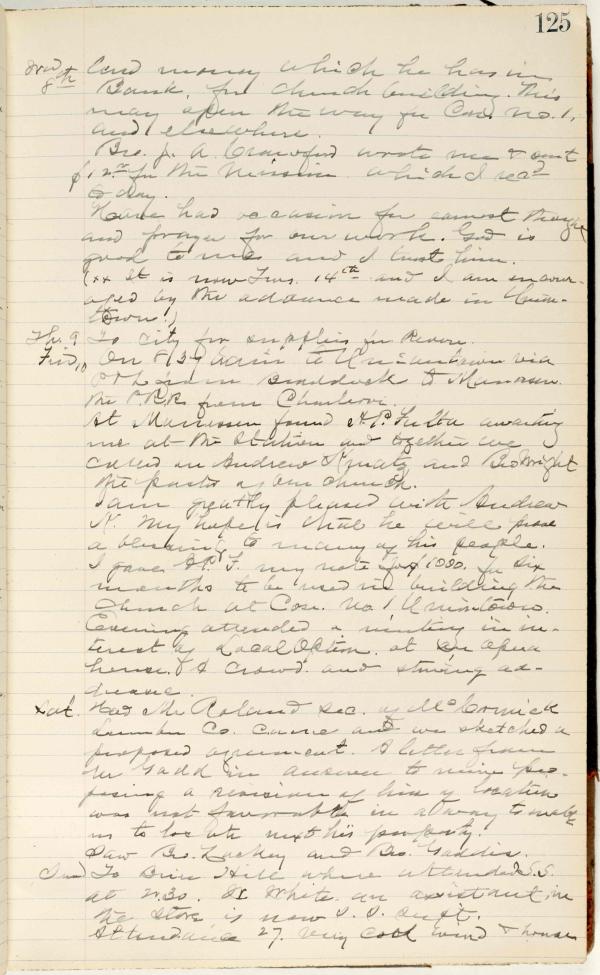 125
Wed 8th lend money which he has in
Bank, for church building. This
may open the way for Coe. No. 1,
and elsewhere.
Bro. J. A. Crawford wrote me & sent
$12.00 for the Mission which I rec'd
to day.
Have had occasion for earnest thought
and prayer for our work. God is
good to me and I trust him.
(xx It is now Tues. 14th and I am encour-
aged by the advance made in Union-
town.)
Th. 9 To City for supplies for Revere.
Frid. 10 On 8/39 again to Uniontown via
from Braddock to Monessen.
the P.R.R. from Charleroi.
At Monessen found A.P. Fulta awaiting
me at the Station and together we
called on Andrew and Bro Wright
the pastor of our church.
I am greatly pleased with Andrew
K. My hope is that he will prove
a blessing to many of his people.
I gave A.P. F. my note for $1000. for six
months to be used in building the
Church at Coe. No. 1 Uniontown.
Evening attended a meeting in in-
terest of Local Option. at an opera
house. A crowd and stirring ad-
dresses.
Sat. Had Mr Roland Sec. of McCormick
Lumber Co. came and we sketched a
proposed agreement. A letter from
Mr Gadd in answer to mine pro-
posing a revision of him of location
was not favorable in a way to make
us to locate next his property.
Saw Bro. Lackey and Bro. Gaddis.
Sund To Brier Hill where attended S.S.
at 2.30. Dr White an assistant in
the Store is now S. S. Supt.
Attendance 27. Very cold wind & house